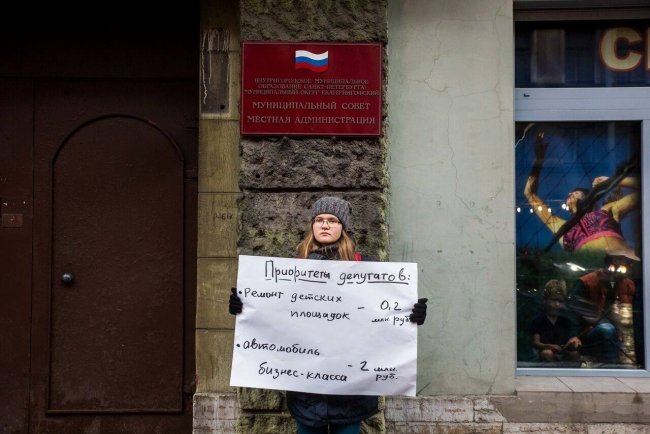 ВНУТРИГОРОДСКОЕ МУНИЦИПАЛЬНОЕ
ОБРАЗОВАНИЕ САНКТ-ПЕТЕРБУРГА
МУНИЦИПАЛЬНЫЙ ОКРУГ ЕКАТЕРИНГОФСКИЙ
МУНИЦИПАЛЬНЫЙ СОВЕТ
МЕСТНАЯ АДМИНИСТРАЦИЯ
Приоритеты депутатов:
• Ремонт детских
площадок - 0,2
млн руб.
• автомобиль
бизнес-класса - 2 млн.
руб.